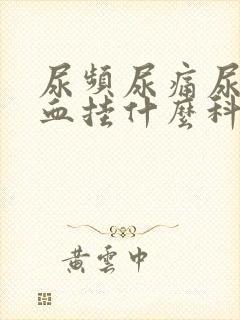 尿頻尿痛尿
血挂什麼科
黃雲中